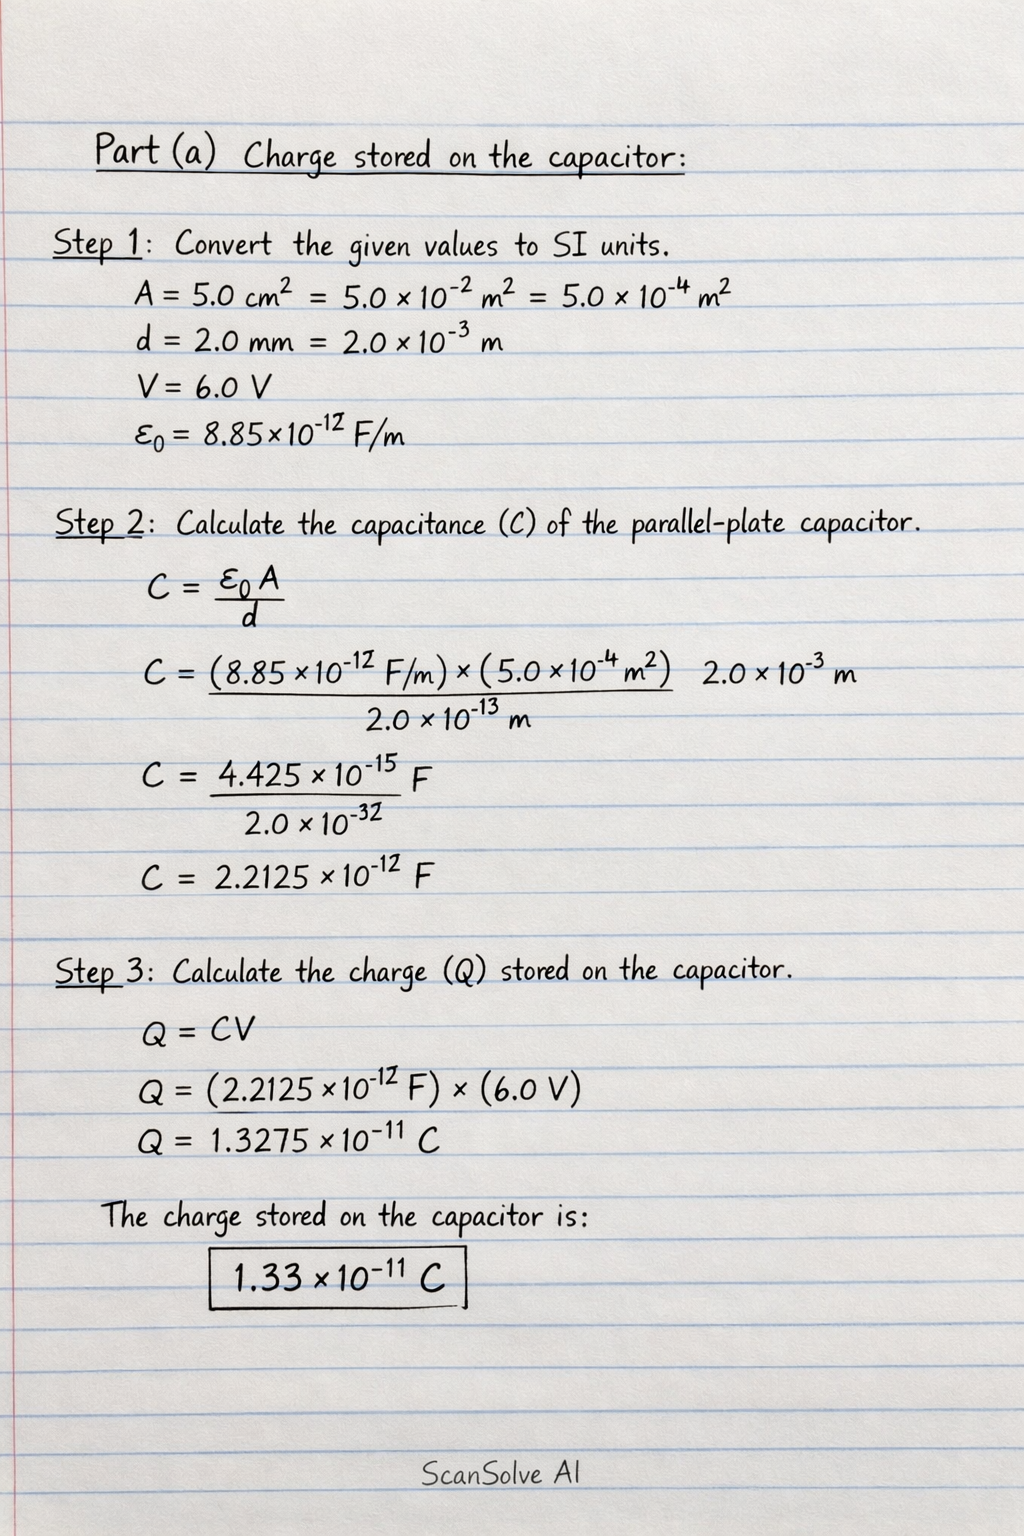 Part (a) Charge stored on the capacitor:
Step 1: Convert the given values to SI units.
A = 5.0 cm² = 5.0 × 10⁻² m² = 5.0 × 10⁻⁴ m²
d = 2.0 mm = 2.0 × 10⁻³ m
V = 6.0 V
ε₀ = 8.85×10⁻¹² F/m
Step 2: Calculate the capacitance (C) of the parallel-plate capacitor.
C = ε₀ A
d
C = (8.85 ×10⁻¹² F/m) × (5.0 ×10⁻⁴ m²) 2.0 × 10⁻³ m
2.0 × 10⁻¹³ m
C = 4.425 × 10⁻¹⁵ F
2.0 × 10⁻³²
C = 2.2125 ×10⁻¹² F
Step 3: Calculate the charge (Q) stored on the capacitor.
Q = CV
Q = (2.2125 ×10⁻¹² F) × (6.0 V)
Q = 1.3275 ×10⁻¹¹ C
The charge stored on the capacitor is:
1.33 ×10⁻¹¹ C
ScanSolve AI